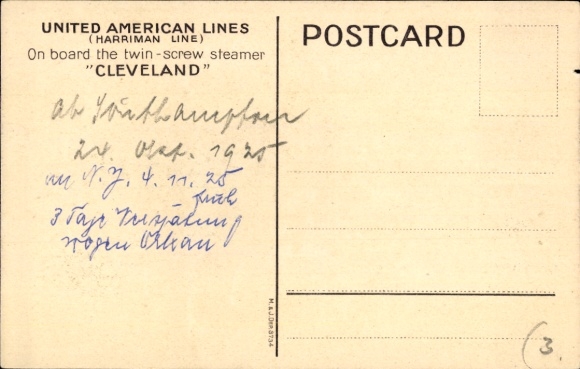 UNITED AMERICAN LINES
(HARRIMAN LINE)
On board the twin-screw steamer
"CLEVELAND"
POSTCARD
ab Southampton
24. Okt. 1925
an N.Y. 4. 11. 25
früh
3 Tage Verspätung
wegen Orkan
3